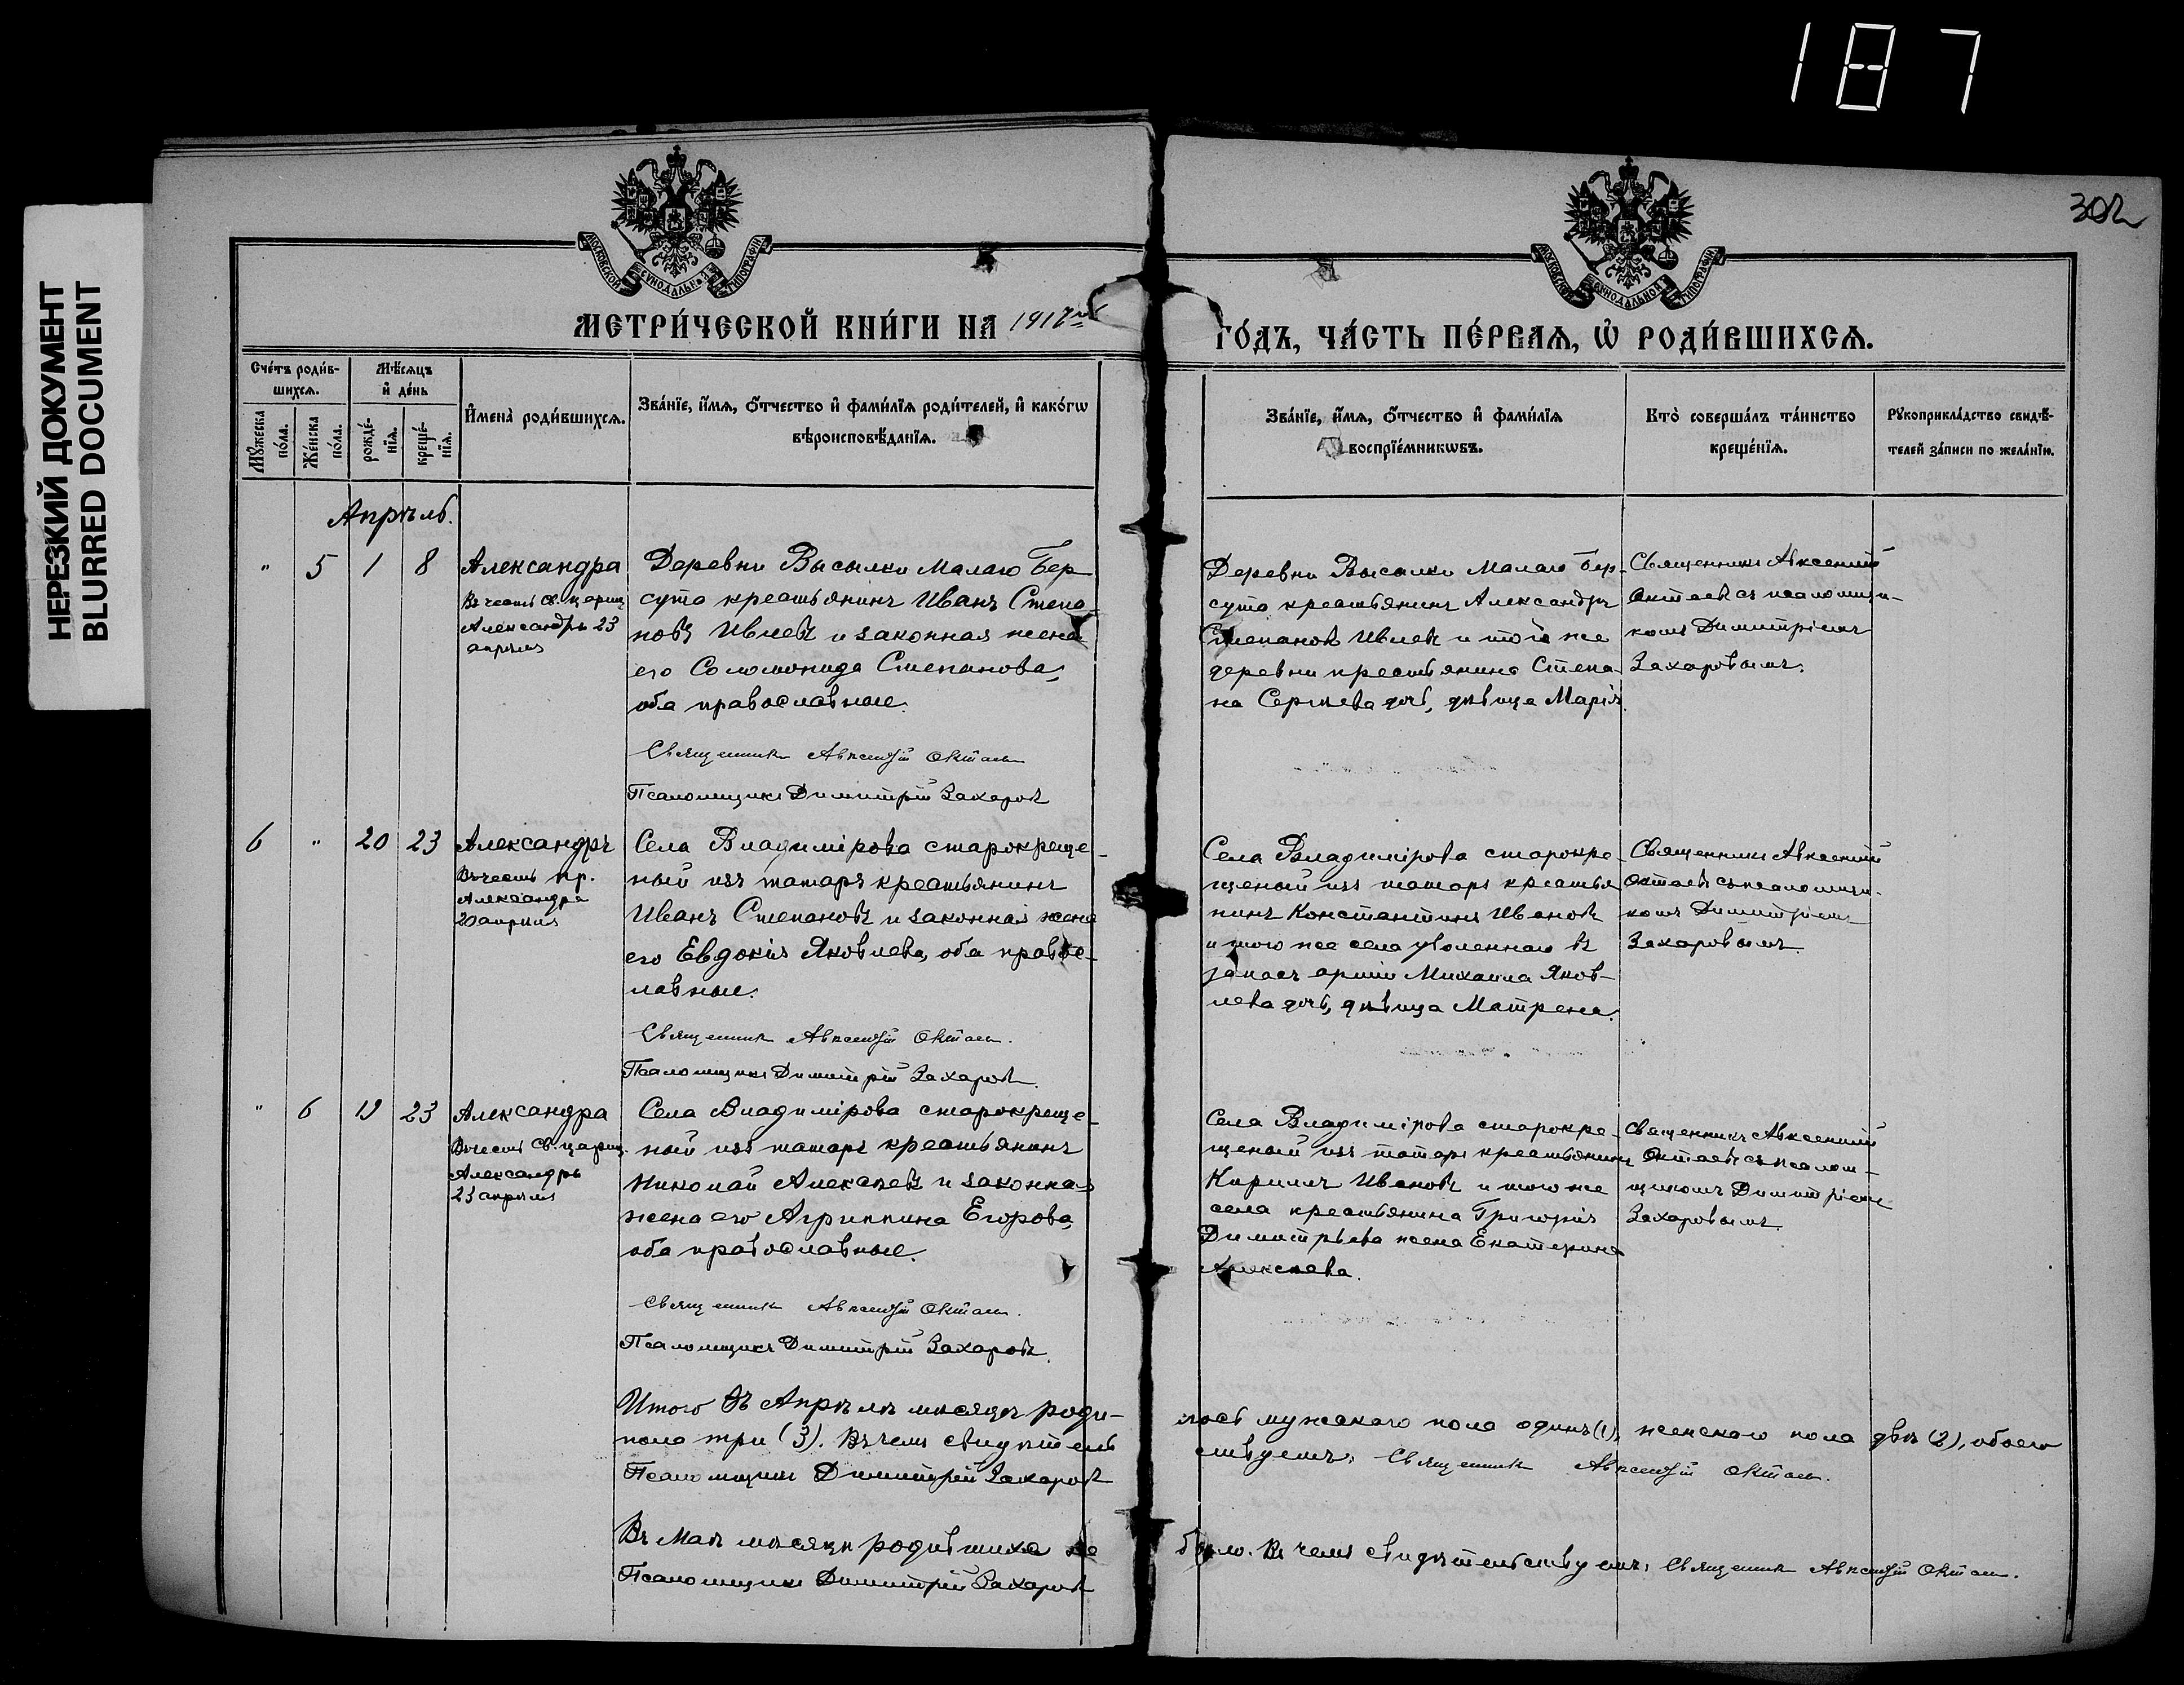 187
НЕРЕЗКИЙ ДОКУМЕНТ
BLURRED DOCUMENT
302
МОСКОВСКОЙ СѴНОДАЛЬНОЙ ТИПОГРАФІИ
МОСКОВСКОЙ СѴНОДАЛЬНОЙ ТИПОГРАФІИ
МЕТРИ́ЧЕСКОЙ КНИ́ГИ НА 1917й ГО́ДЪ, ЧА́СТЬ ПЕ́РВАѦ, Ѡ҆ РОДИ́ВШИХСѦ.
Сче́тъ роди́в-
шихсѧ.
Мꙋ́жеска по́ла.
Же́нска по́ла.
Мѣ́сѧцъ
и҆ де́нь
рожде́-
нїѧ.
креще́-
нїѧ.
И҆мена̀ роди́вшихсѧ.
Зва́нїе, и҆́мѧ, ѻ҆́тчество и҆ фами́лїѧ роди́телей, и҆ како́гѡ
вѣроисповѣ́данїѧ.
Зва́нїе, и҆́мѧ, ѻ҆́тчество и҆ фами́лїѧ
воспрїе́мникѡвъ.
Кто̀ соверша́лъ та́инство
креще́нїѧ.
Рꙋкоприкла́дство свидѣ́-
телей за́писи по жела́нїю.
Апрѣль.
" 5 1 8
Александра
Въ честь св. цариц.
Александры 23
апрѣля
Деревни Высылки Малаго Бер-
сута крестьянинъ Иванъ Степа-
новъ Ивлевъ и законная жена
его Соломонида Степанова,
оба православные.
Священникъ Авксентій Октаевъ
Псаломщикъ Димитрій Захаровъ
Деревни Высылки Малаго Бер-
сута крестьянинъ Александръ
Степановъ Ивлевъ и той же
деревни крестьянина Степа-
на Сергѣева дочь, дѣвица Марія.
Священникъ Авксентій
Октаевъ съ псаломщи-
комъ Димитріемъ
Захаровымъ.
6 " 20 23
Александръ
Въ честь пр.
Александра
20 апрѣля
Села Владимірова старокреще-
ный изъ татаръ крестьянинъ
Иванъ Степановъ и законная жена
его Евдокія Яковлева, оба правос-
лавные.
Священникъ Авксентій Октаевъ.
Псаломщикъ Димитрій Захаровъ.
Села Владимірова старокре-
щеный изъ татаръ крестья
нинъ Константинъ Ивановъ
и того же села уволеннаго въ
запасъ арміи Михаила Яков-
лева дочь, дѣвица Матрена.
Священникъ Авксентій
Октаевъ съ псаломщи-
комъ Димитріемъ
Захаровымъ.
" 6 19 23
Александра
Въ честь св. цариц.
Александры
23 апрѣля
Села Владимірова старокреще-
ный изъ татаръ крестьянинъ
Николай Алексѣевъ и законная
жена его Агриппина Егорова,
оба православные.
Священникъ Авксентій Октаевъ.
Псаломщикъ Димитрій Захаровъ.
Села Владимірова старокре-
щеный изъ татаръ крестьянинъ
Кириллъ Ивановъ и того же
села крестьянина Григорія
Димитріева жена Екатерина
Алексѣева.
Священникъ Авксентій
Октаевъ съ псалом-
щикомъ Димитріемъ
Захаровымъ.
Итого въ Апрѣлѣ мѣсяцѣ роди-лось мужеского пола одинъ (1), женскаго пола двѣ (2), обоего
пола три (3). Въ чемъ свидѣтель-ствуемъ: Священникъ Авксентій Октаевъ.
Псаломщикъ Димитрій Захаровъ
Въ Маѣ мѣсяцѣ родившихся не было. Въ чемъ свидѣтельствуемъ: Священникъ Авксентій Октаевъ.
Псаломщикъ Димитрій Захаровъ